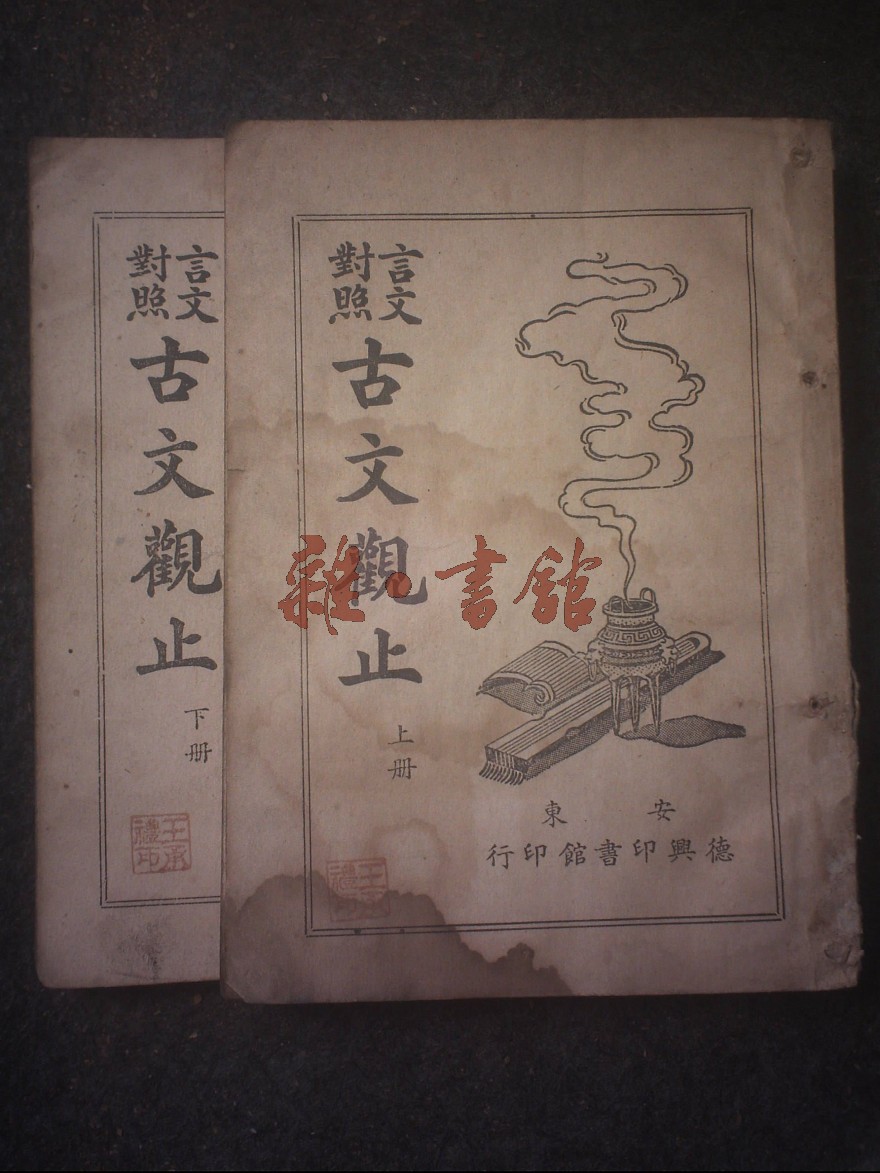 言文
對照
古文觀止
上册
安東
德興印書館印行
言文
對照
古文觀止
下册
王承
禮印
雜·書館